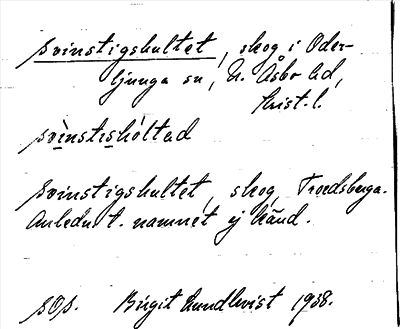 Svinstigshultet, skog i Oder-
ljunga sn, N. Åsbo hd,
Krist. l.
svinstishóltad
Svinstigshultet, skog, Troedsberga.
Anledn t. namnet ej känd.
SOS. Birgit Lundkvist 1938.